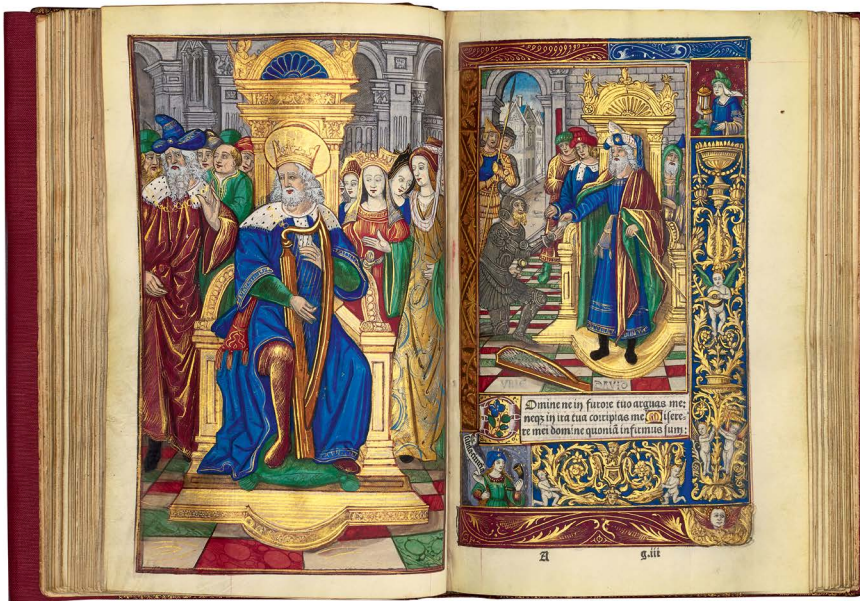 VRIE DAVID
Domine ne in furore tuo arguas me:
neq; in ira tua corripias me. Misere-
re mei domine quoniã infirmus sum:
A g.iii